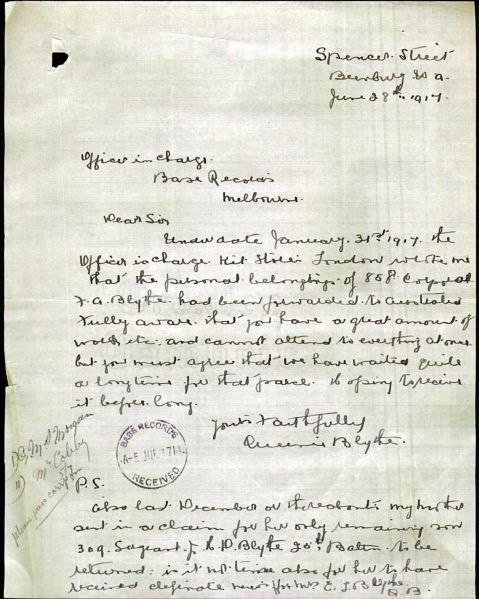 Spencer Street
Bunbury W a.
June 28th 1917.
Officer in Charge.
Base Records
Melbourne.
Dear Sir
Under date January 31st 1917. the
Officer in charge Kit Store London wrote me
that the personal belongings of 858. Corporal
F. A. Blythe. had been forwarded to Australia
Fully aware that you have a great amount of
work etc. and cannot attend to everything at once
but you must agree that we have waited quite
a long time for that parcel. Hoping to receive
it before long.
Yours Faithfully
Queenie Blythe.
BASE RECORDS
A-5 JUL 1917
RECEIVED
P.S.
Also last December or thereabouts my mother
sent in a claim for her only remaining son
309. Sargeant J. R. D. Blythe 20th Battn. to be
returned; is it not time also for her to have
received definate news for Mrs E. J. Blythe
Q. B.